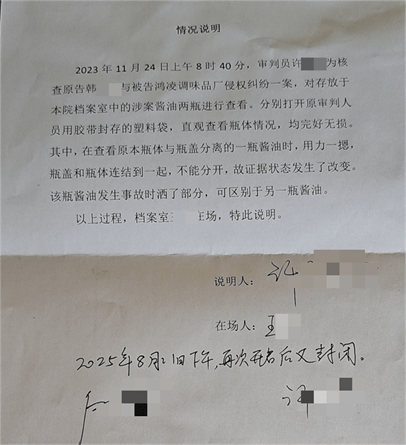 情况说明
2023年11月24日上午8时40分，审判员许 为核
查原告韩 与被告鸿凌调味品厂侵权纠纷一案，对存放于
本院档案室中的涉案酱油两瓶进行查看。分别打开原审判人
员用胶带封存的塑料袋，直观查看瓶体情况，均完好无损。
其中，在查看原本瓶体与瓶盖分离的一瓶酱油时，用力一摁，
瓶盖和瓶体连结到一起，不能分开，故证据状态发生了改变。
该瓶酱油发生事故时洒了部分，可区别于另一瓶酱油。
以上过程，档案室 在场，特此说明。
说明人：
在场人：王
2025年8月21日下午，再次开启后又封闭。